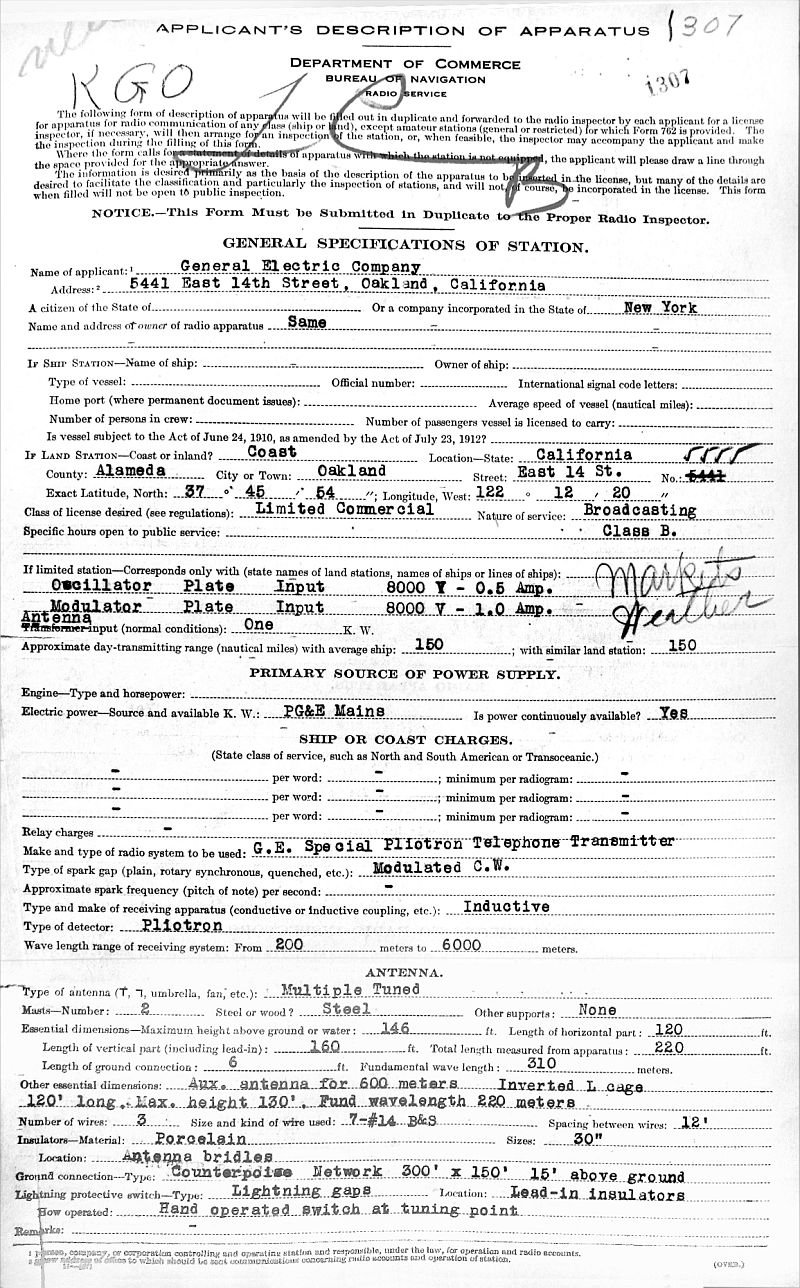 APPLICANT'S DESCRIPTION OF APPARATUS 1307
DEPARTMENT OF COMMERCE
BUREAU OF NAVIGATION
RADIO SERVICE
1307
KGO
LC
B
The following form of description of apparatus will be filled out in duplicate and forwarded to the radio inspector by each applicant for a license
for apparatus for radio communication of any class (ship or land), except amateur stations (general or restricted) for which Form 762 is provided. The
inspector, if necessary, will then arrange for an inspection of the station, or, when feasible, the inspector may accompany the applicant and make
the inspection during the filling of this form.
Where the form calls for a statement of details of apparatus with which the station is not equipped, the applicant will please draw a line through
the space provided for the appropriate answer.
The information is desired primarily as the basis of the description of the apparatus to be inserted in the license, but many of the details are
desired to facilitate the classification and particularly the inspection of stations, and will not, of course, be incorporated in the license. This form
when filled will not be open to public inspection.
NOTICE.—This Form Must be Submitted in Duplicate to the Proper Radio Inspector.
GENERAL SPECIFICATIONS OF STATION.
Name of applicant:¹ General Electric Company
Address:² 5441 East 14th Street, Oakland, California
A citizen of the State of Or a company incorporated in the State of New York
Name and address of owner of radio apparatus Same – –
– –
IF SHIP STATION—Name of ship: – Owner of ship:
Type of vessel: Official number: International signal code letters:
Home port (where permanent document issues): Average speed of vessel (nautical miles):
Number of persons in crew: Number of passengers vessel is licensed to carry:
Is vessel subject to the Act of June 24, 1910, as amended by the Act of July 23, 1912?
IF LAND STATION—Coast or inland? Coast Location—State: California 5555
County: Alameda City or Town: Oakland Street: East 14 St. No.: 5441
Exact Latitude, North: 37 ° 45 ′ 54 ″; Longitude, West: 122 ° 12 ′ 20 ″
Class of license desired (see regulations): Limited Commercial Nature of service: Broadcasting
Specific hours open to public service: Class B.
If limited station—Corresponds only with (state names of land stations, names of ships or lines of ships): Markets
Oscillator Plate Input 8000 V - 0.5 Amp.
Modulator Plate Input 8000 V - 1.0 Amp. Weather
Antenna
Transformer input (normal conditions): One K. W.
Approximate day-transmitting range (nautical miles) with average ship: 150 ; with similar land station: 150
PRIMARY SOURCE OF POWER SUPPLY.
Engine—Type and horsepower:
Electric power—Source and available K. W.: PG&E Mains Is power continuously available? Yes
SHIP OR COAST CHARGES.
(State class of service, such as North and South American or Transoceanic.)
– per word: – ; minimum per radiogram: –
– per word: – ; minimum per radiogram: –
– per word: – ; minimum per radiogram: –
Relay charges –
Make and type of radio system to be used: G.E. Special Pliotron Telephone Transmitter
Type of spark gap (plain, rotary synchronous, quenched, etc.): Modulated C.W.
Approximate spark frequency (pitch of note) per second: –
Type and make of receiving apparatus (conductive or inductive coupling, etc.): Inductive
Type of detector: Pliotron
Wave length range of receiving system: From 200 meters to 6000 meters.
ANTENNA.
Type of antenna (T, ┐, umbrella, fan, etc.): Multiple Tuned
Masts—Number: 2 Steel or wood? Steel Other supports: None
Essential dimensions—Maximum height above ground or water: 146 ft. Length of horizontal part: 120 ft.
Length of vertical part (including lead-in): 160 ft. Total length measured from apparatus: 220 ft.
Length of ground connection: 6 ft. Fundamental wave length: 310 meters.
Other essential dimensions: Aux. antenna for 600 meters Inverted L cage
120' long. Max. height 130'. Fund wavelength 220 meters
Number of wires: 3 Size and kind of wire used: 7-#14 B&S Spacing between wires: 12'
Insulators—Material: Porcelain Sizes: 30"
Location: Antenna bridles
Ground connection—Type: Counterpoise Network 300' x 150' 15' above ground
Lightning protective switch—Type: Lightning gaps Location: Lead-in insulators
How operated: Hand operated switch at tuning point
Remarks: –
¹ person, company, or corporation controlling and operating station and responsible, under the law, for operation and radio accounts.
address of office to which should be sent communications concerning radio accounts and operation of station.
(OVER.)